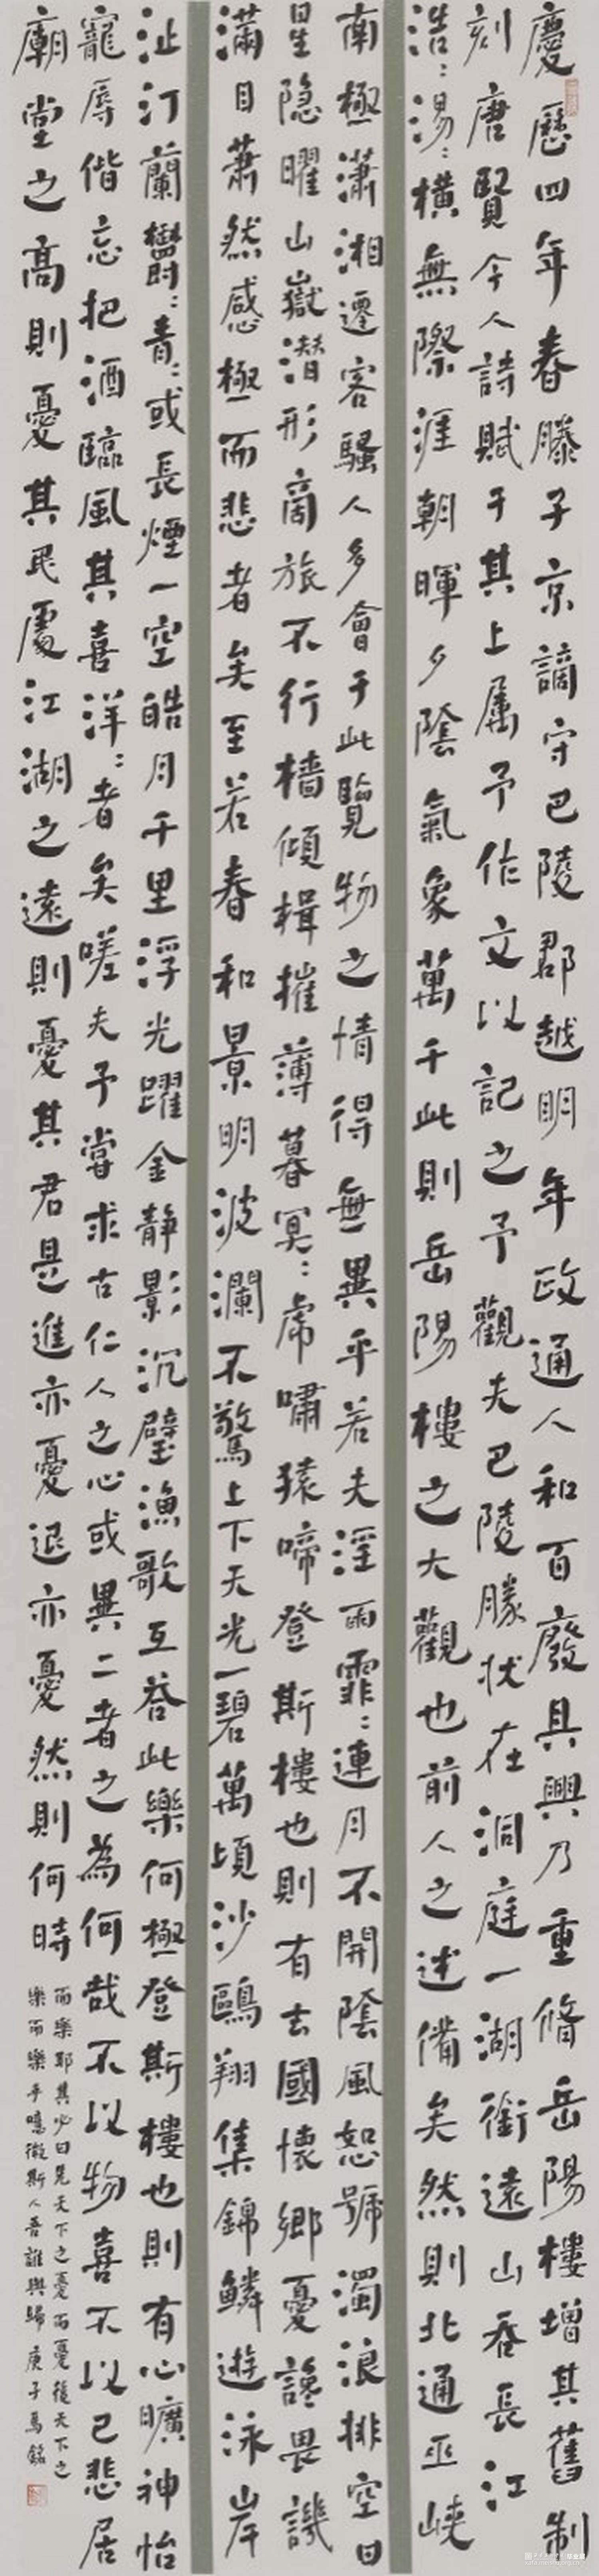 慶歷四年春滕子京謫守巴陵郡越明年政通人和百廢具興乃重脩岳陽樓增其舊制
刻唐賢今人詩賦于其上屬予作文以記之予觀夫巴陵勝狀在洞庭一湖銜遠山吞長江
浩:湯:橫無際涯朝暉夕陰氣象萬千此則岳陽樓之大觀也前人之述備矣然則北通巫峽
南極瀟湘遷客騷人多會于此覽物之情得無異乎若夫淫雨霏:連月不開陰風怒號濁浪排空日
星隱曜山嶽潛形商旅不行檣傾楫摧薄暮冥:虎嘯猿啼登斯樓也則有去國懷鄉憂讒畏譏
滿目蕭然感極而悲者矣至若春和景明波瀾不驚上下天光一碧萬頃沙鷗翔集錦鱗遊泳岸
沚汀蘭鬱:青:或長煙一空皓月千里浮光躍金靜影沉璧漁歌互答此樂何極登斯樓也則有心曠神怡
寵辱偕忘把酒臨風其喜洋:者矣嗟夫予嘗求古仁人之心或異二者之為何哉不以物喜不以己悲居
廟堂之高則憂其民處江湖之遠則憂其君是進亦憂退亦憂然則何時
而樂耶其必曰先天下之憂而憂後天下之
樂而樂乎噫微斯人吾誰與歸庚子馬銘